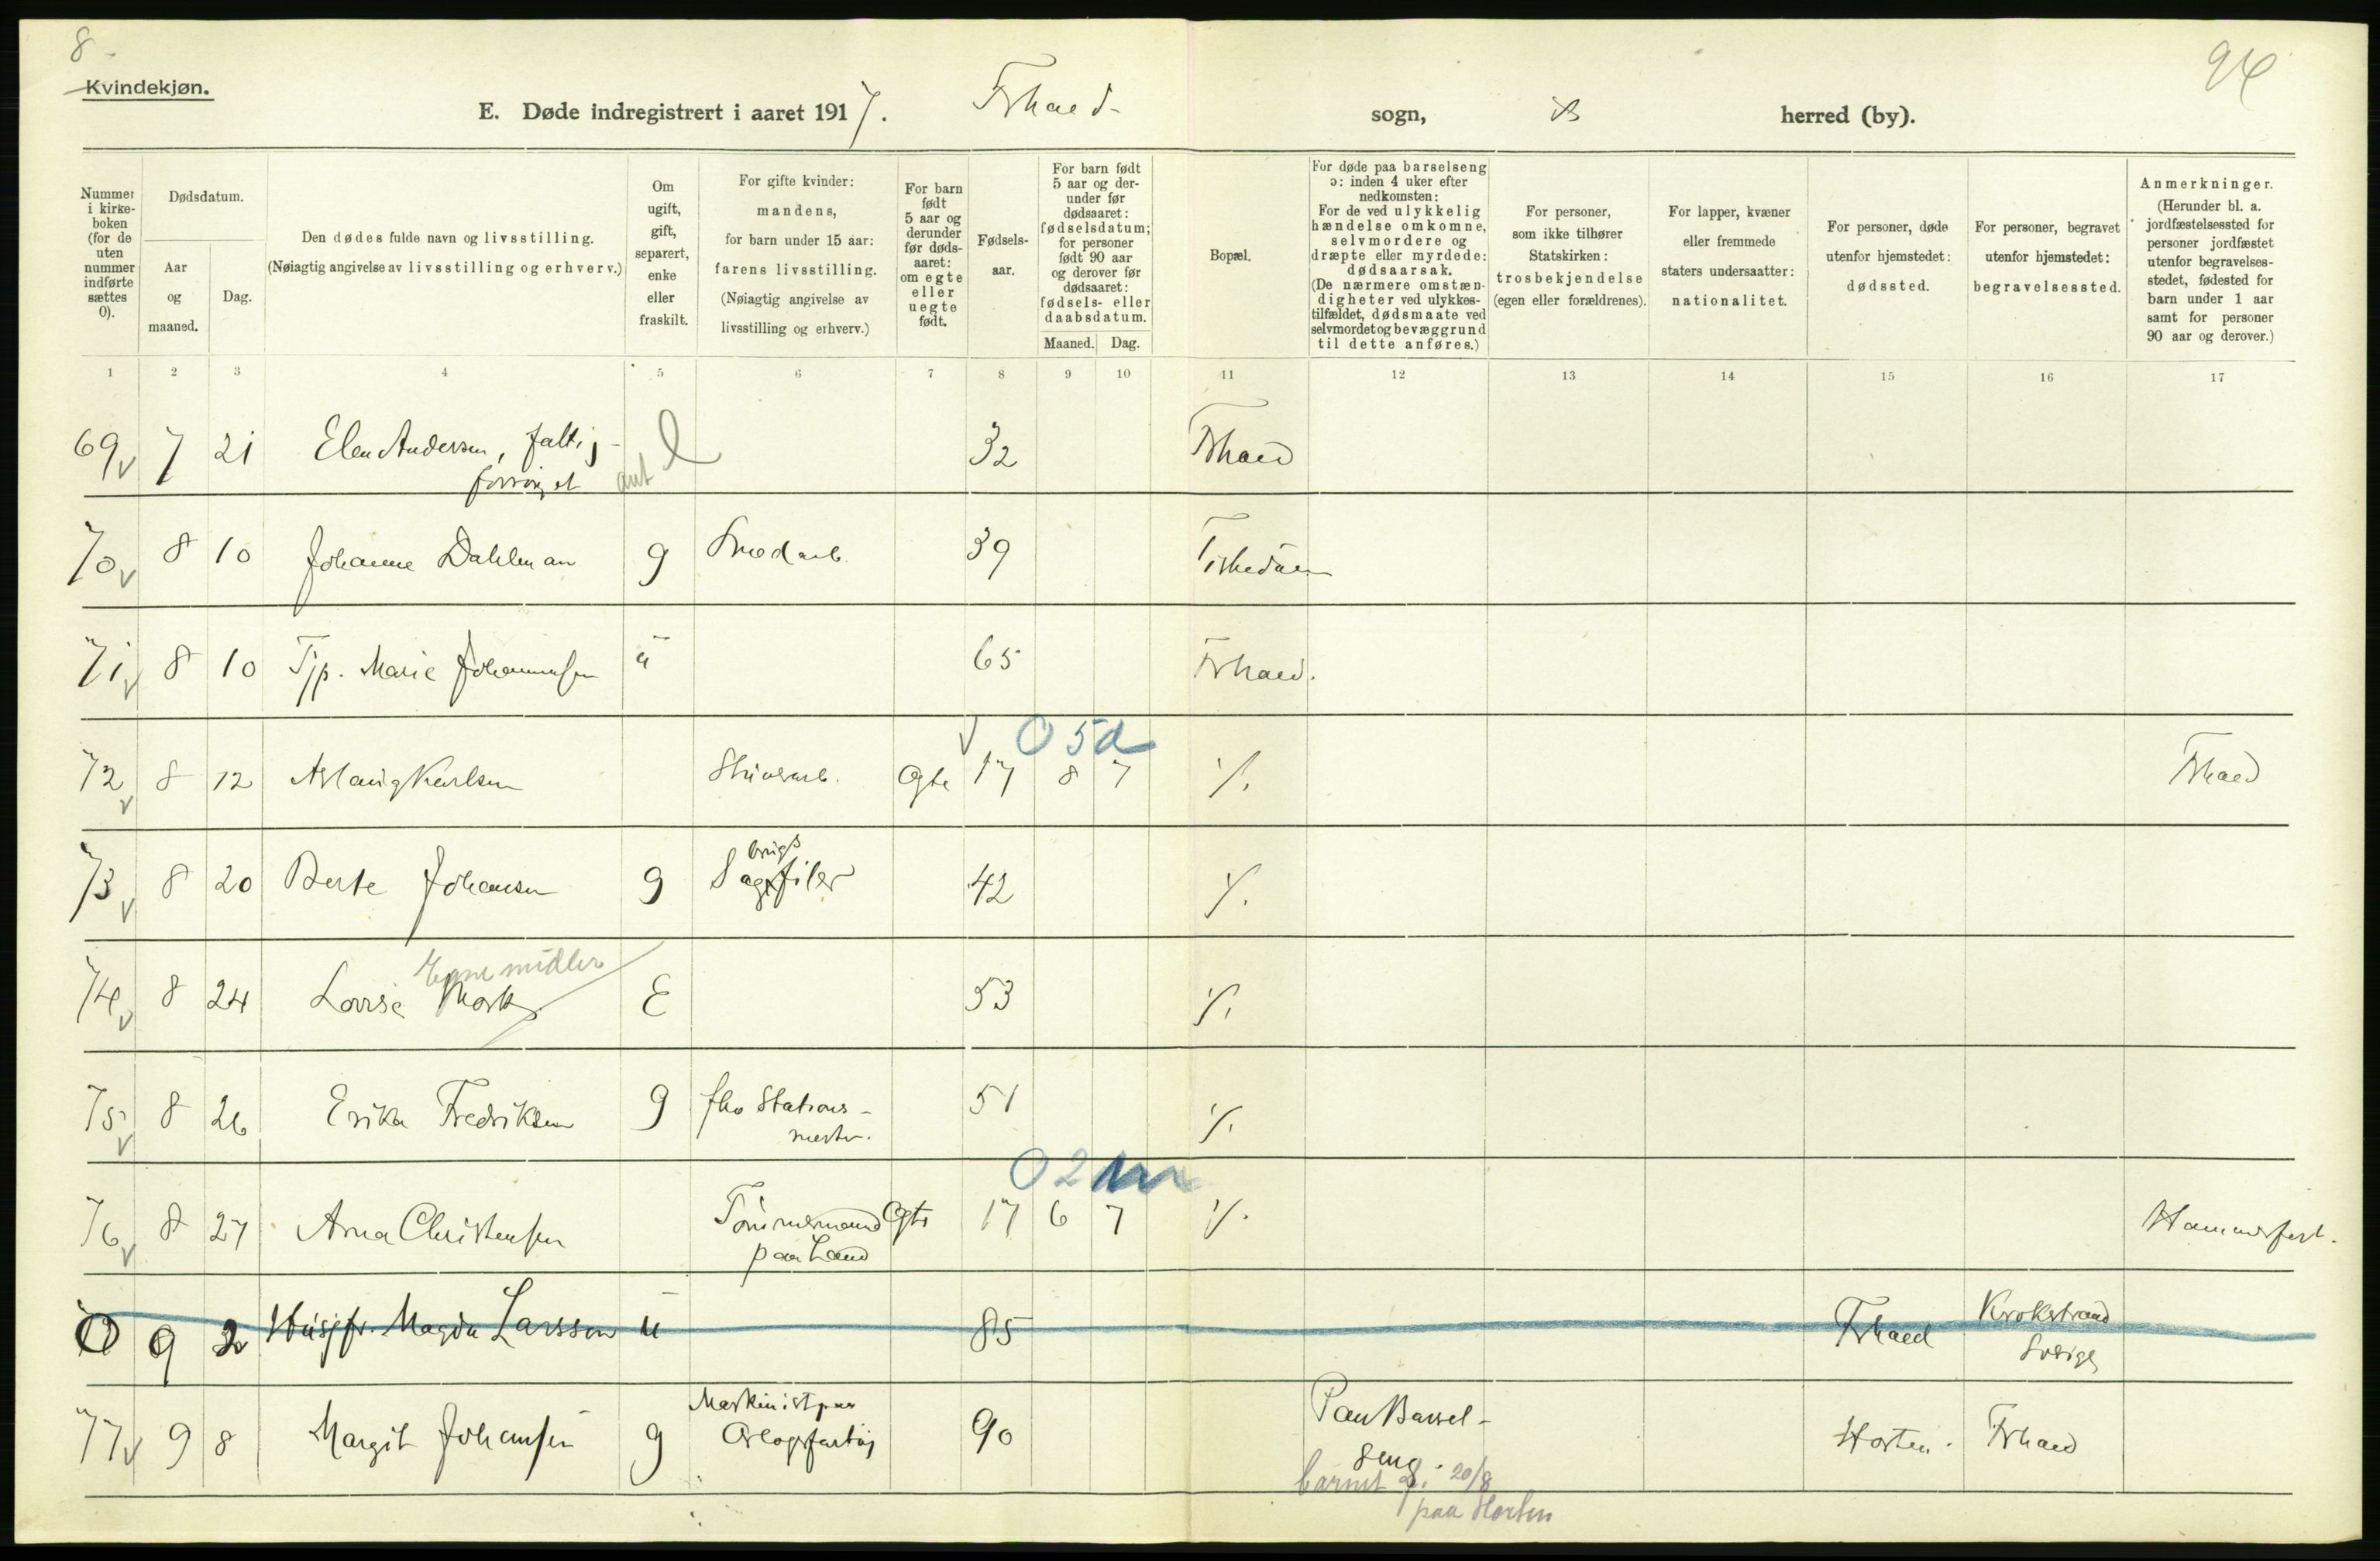 8
94
Kvindekjøn.
E. Døde indregistrert i aaret 1917. Frhaed sogn, herred (by).
Nummer i kirkeboken (for de uten nummer indførte sættes 0).
Dødsdatum.
Aar og maaned.
Dag.
Den dødes fulde navn og livsstilling.
(Nøiagtig angivelse av livsstilling og erhverv.)
Om ugift, gift, separert, enke eller fraskilt.
For gifte kvinder: mandens, for barn under 15 aar: farens livsstilling. (Nøiagtig angivelse av livsstilling og erhverv.)
For barn født 5 aar og derunder før dødsaaret: om egte eller uegte født.
Fødselsaar.
For barn født 5 aar og derunder før dødsaaret: fødselsdatum; for personer født 90 aar og derover før dødsaaret: fødsels- eller daabsdatum.
Maaned. Dag.
Bopæl.
For døde paa barselseng ɔ: inden 4 uker efter nedkomsten: For de ved ulykkelig hændelse omkomne, selvmordere og dræpte eller myrdede: dødsaarsak. (De nærmere omstændigheter ved ulykkestilfældet, dødsmaate ved selvmordet og bevæggrund til dette anføres.)
For personer, som ikke tilhører Statskirken: trosbekjendelse (egen eller forældrenes).
For lapper, kvæner eller fremmede staters undersaatter: nationalitet.
For personer, døde utenfor hjemstedet: dødssted.
For personer, begravet utenfor hjemstedet: begravelsessted.
Anmerkninger. (Herunder bl. a. jordfæstelsessted for personer jordfæstet utenfor begravelsesstedet, fødested for barn under 1 aar samt for personer 90 aar og derover.)
1 2 3 4 5 6 7 8 9 10 11 12 13 14 15 16 17
69 7 21 Elen Andersen, fattig- 32 Frhaed
forsørget
70 8 10 Johanne Dahlman g 39 Tistedalen
71 8 10 Tjp. Marie Johannesen u 65 Frhaed.
0 5d
72 8 12 Aslaug Karlsen Egte 17 8 7 ./. Frhaed
brugs
73 8 20 Berte Johansen g Sagfiler 42 ./.
Egne midler
74 8 24 Lovise Mork E 53 ./.
75 8 26 Erika Fredriksen g fhv Stations- 51 ./.
mester.
0 2m
76 8 27 Arna Christensen Tømmermand Egte 17 6 7 ./. Hammerfest.
paa Land
0 9 2 Husjfr. Magda Larsson u 85 Frhaed Krokstrand
Sverige
Maskinist paa
77 9 8 Margit Johansen g Orlogsfartøj 90 Paa Barsel- Horten. Frhaed
seng.
barnet f. 20/8
paa Horten